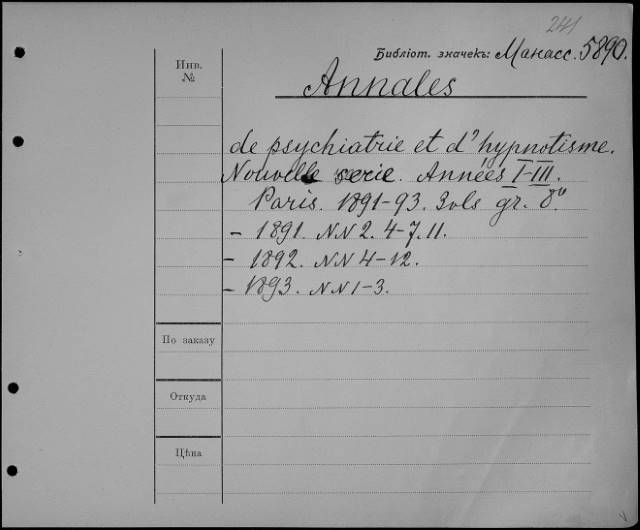 241
Библіот. значекъ: Манасс. 5890.
Инв.
№
Annales
de psychiatrie et d'hypnotisme.
Nouvelle serie. Années I-III.
Paris. 1891-93. 3 vls gr. 8º.
- 1891. NN 2. 4-7. 11.
- 1892. NN 4-12.
- 1893. NN 1-3.
По заказу
Откуда
Цѣна